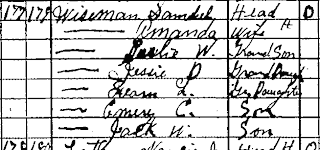 177 178 Wiseman Samuel Head O
— Amanda Wife H
— Leslie W. Grand Son
— Jessie D Grand Daugh
— L. Daughter
— Emery C. Son
— Jack W. Son